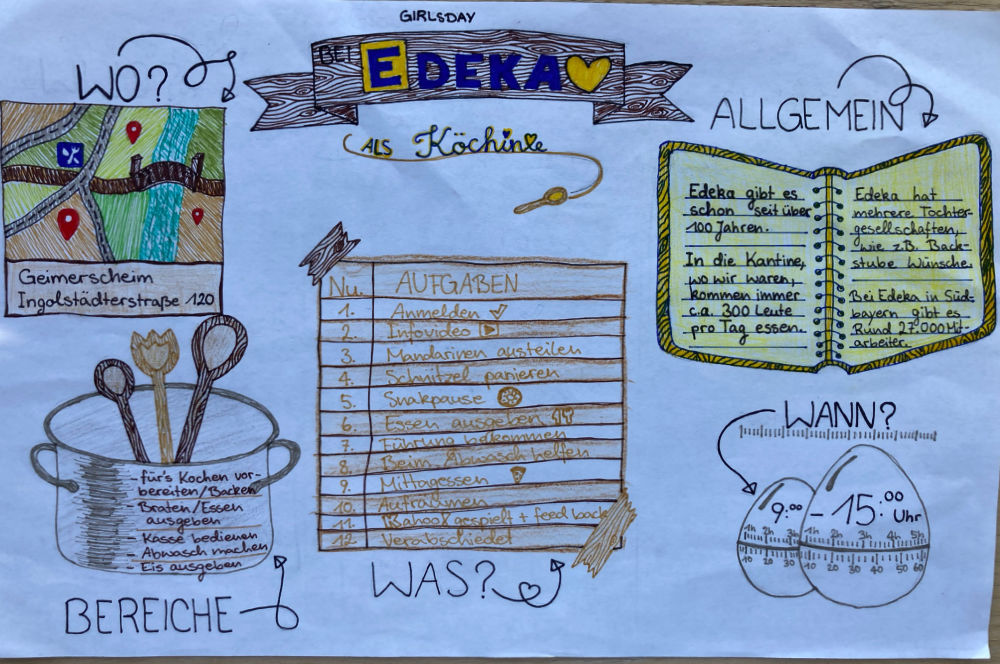 GIRLSDAY
BEI EDEKA
ALS Köchin
WO?
Geimerscheim
Ingolstädterstraße 120
ALLGEMEIN
Edeka gibt es
schon seit über
100 Jahren.
In die Kantine,
wo wir waren,
kommen immer
c.a. 300 Leute
pro Tag essen.
Edeka hat
mehrere Tochter-
gesellschaften,
wie z.B. Back-
stube Wünsche.
Bei Edeka in Süd-
bayern gibt es
Rund 27.000 Mit-
arbeiter.
Nu. AUFGABEN
1. Anmelden
2. Infovideo
3. Mandarinen austeilen
4. Schnitzel panieren
5. Snakpause
6. Essen ausgeben
7. Führung bekommen
8. Beim Abwasch helfen
9. Mittagessen
10. Aufräumen
11. Kahoot gespielt + feed back
12. Verabschiedet
WAS?
- für's Kochen vor-
bereiten/Backen
- Braten/Essen
ausgeben
- Kasse bedienen
- Abwasch machen
- Eis ausgeben
BEREICHE
WANN?
9:00 - 15:00 Uhr
1h 2h 3h 1h 2h 3h 4h 5h
10 20 30 10 20 30 40 50 60